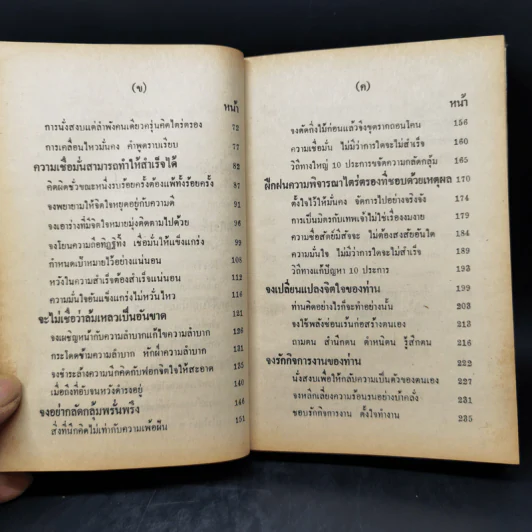 (ข)
หน้า
การนั่งสงบแต่ลำพังคนเดียวครุ่นคิดไตร่ตรอง 72
การเคลื่อนไหวมั่นคง คำพูดราบเรียบ 77
ความเชื่อมั่นสามารถทำให้สำเร็จได้ 82
คิดผิดชั่วขณะหนึ่งรบร้อยครั้งต้องแพ้ทั้งร้อยครั้ง 87
จงพยายามให้จิตใจหยุดอยู่กับความดี 91
จงเอาร่างที่มีจิตใจหมายมุ่งติดตามไปด้วย 93
จงโยนความถือทิฏฐิทิ้ง เชื่อมั่นให้แข็งแกร่ง 99
กำหนดเป้าหมายไว้อย่างแน่นอน 105
หวังในความสำเร็จต้องสำเร็จแน่นอน 112
ความมั่นใจอันแข็งแกร่งไม่หวั่นไหว 117
จะไม่เชื่อว่าล้มเหลวเป็นอันขาด 121
จงเผชิญหน้ากับความลำบากแก้ไขความลำบาก 125
กระโดดข้ามความลำบาก หักฝ่าความลำบาก 131
จงชำระล้างความนึกคิดกับฟอกจิตใจให้สะอาด 135
เมื่อถึงที่อับจนหวังดำรงอยู่ 140
จงอย่ากลัดกลุ้มพรั่นพรึง 146
สิ่งที่นึกคิดไม่เท่ากับความเพ้อฝัน 151
(ค)
หน้า
จงตัดกิ่งไม้ก่อนแล้วจึงขุดรากถอนโคน 156
ความเชื่อมั่น ไม่มีว่าการใดจะไม่สำเร็จ 160
วิธีทางใหญ่ 10 ประการขจัดความกลัดกลุ้ม 165
ฝึกฝนความพิจารณาไตร่ตรองที่ชอบด้วยเหตุผล 170
ตั้งใจไว้ให้มั่นคง จัดการไปอย่างจริงจัง 174
การเป็นมิตรกับเทพเจ้าไม่ใช่เรื่องงมงาย 179
ความซื่อสัตย์มีสัจจะ ไม่ต้องสงสัยอันใด 184
ความมั่นใจ ไม่มีว่าการใดจะไม่สำเร็จ 189
วิธีทางแก้ปัญหา 10 ประการ 193
จงเปลี่ยนแปลงจิตใจของท่าน 199
ท่านคิดอย่างไรก็จะทำอย่างนั้น 203
จงใช้พลังซ่อนเร้นก่อสร้างตนเอง 213
ถามตน สำนึกตน ตำหนิตน รู้สึกตน 216
จงรักกิจการงานของท่าน 222
นั่งสงบเพื่อให้กลับความเป็นตัวของตนเอง 227
จงหลีกเลี่ยงความร้อนรนอย่างบ้าคลั่ง 231
ชอบรักกิจการงาน ตั้งใจทำงาน 235